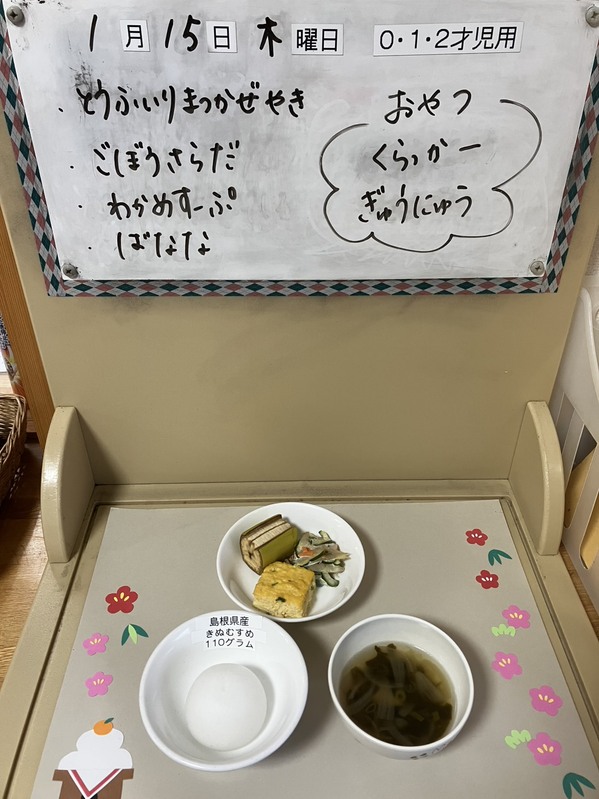 1月15日 木 曜日 0・1・2才児用
・とうふいりまつかぜやき
・ごぼうさらだ
・わかめすーぷ
・ばなな
おやつ
くらっかー
ぎゅうにゅう
島根県産
きぬむすめ
110グラム